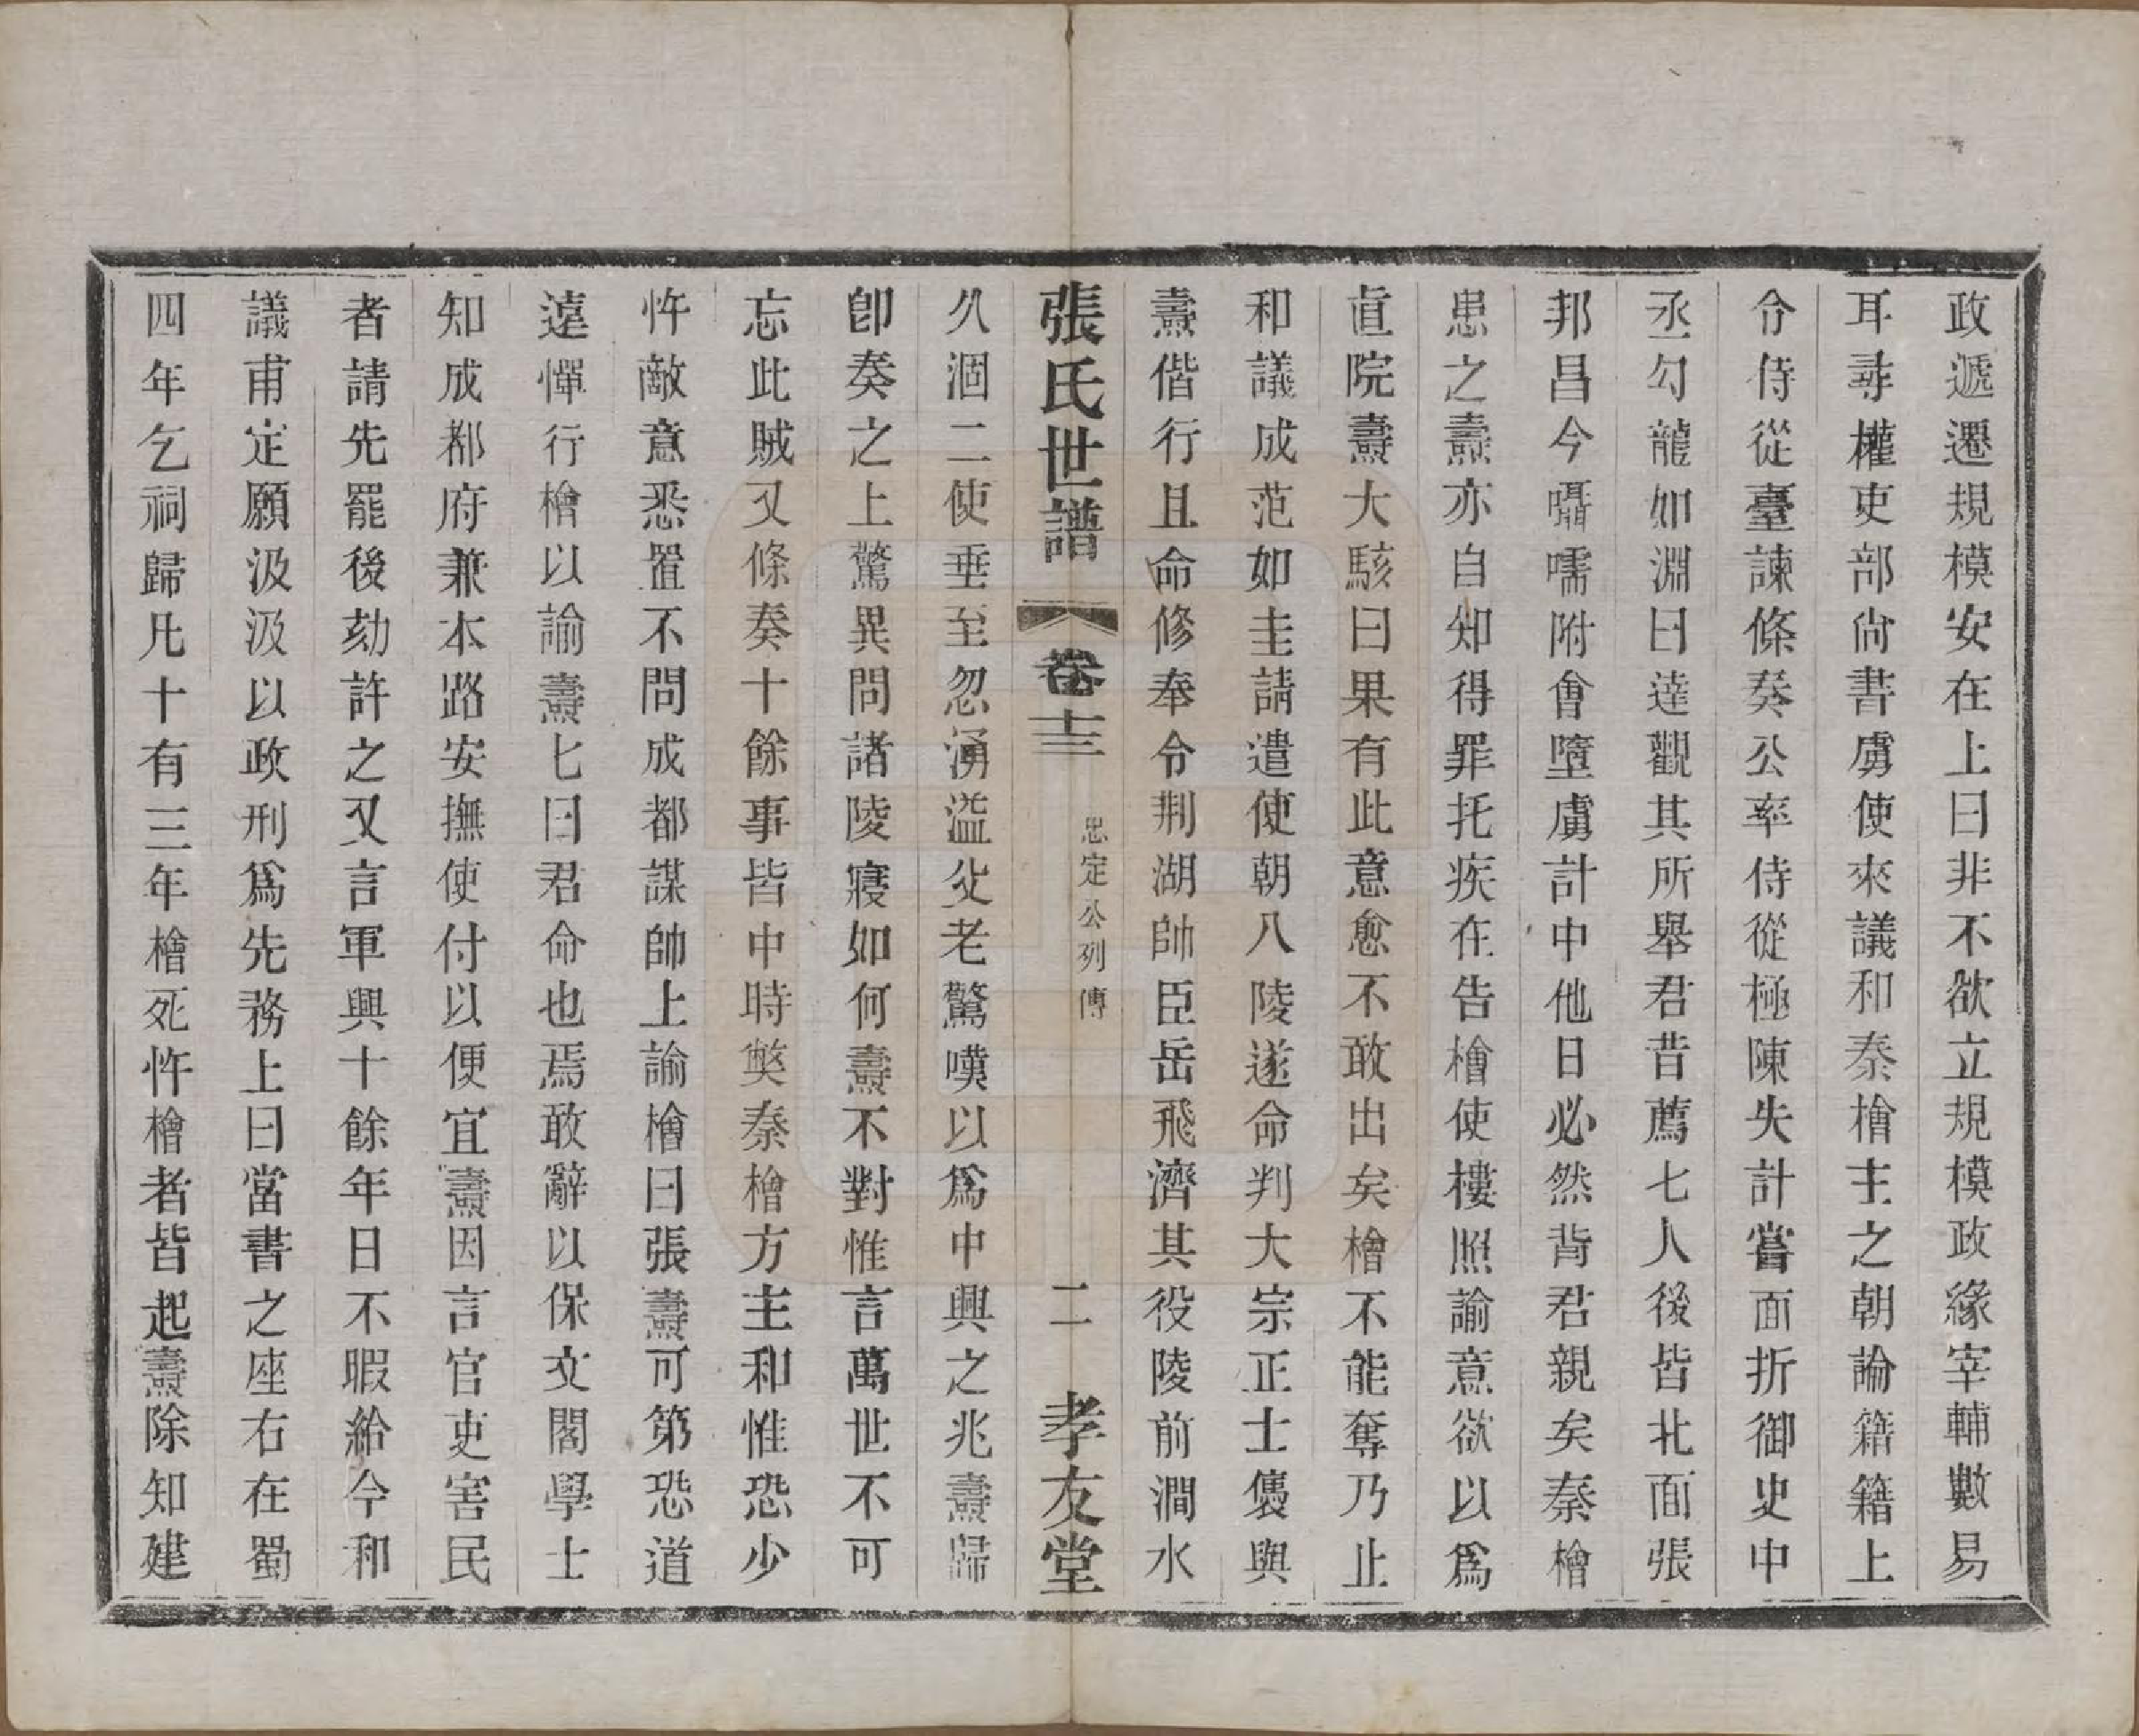 政遞遷規模安在上曰非不欲立規模政緣宰輔數易
耳尋權吏部尙書虜使來議和秦檜主之朝論籍籍上
令侍從臺諫條奏公率侍從極陳失計嘗面折御史中
丞勾龍如淵曰達觀其所舉君昔薦七人後皆北面張
邦昌今囁嚅附會墮虜計中他日必然背君親矣秦檜
患之燾亦自知得罪托疾在告檜使樓照諭意欲以爲
直院燾大駭曰果有此意愈不敢出矣檜不能奪乃止
和議成范如圭請遣使朝八陵遂命判大宗正士㒟與
燾偕行且命修奉令荆湖帥臣岳飛濟其役陵前澗水
張氏世譜 卷十三 忠定公列傳 二 孝友堂
久涸二使垂至忽湧溢父老驚嘆以爲中興之兆燾歸
卽奏之上驚異問諸陵寢如何燾不對惟言萬世不可
忘此賊又條奏十餘事皆中時獘秦檜方主和惟恐少
忤敵意悉置不問成都謀帥上諭檜曰張燾可第恐道
遠憚行檜以諭燾七曰君命也焉敢辭以保文閣學士
知成都府兼本路安撫使付以便宜燾因言官吏害民
者請先罷後劾許之又言軍興十餘年日不暇給今和
議甫定願汲汲以政刑爲先務上曰當書之座右在蜀
四年乞祠歸凡十有三年檜死忤檜者皆起燾除知建